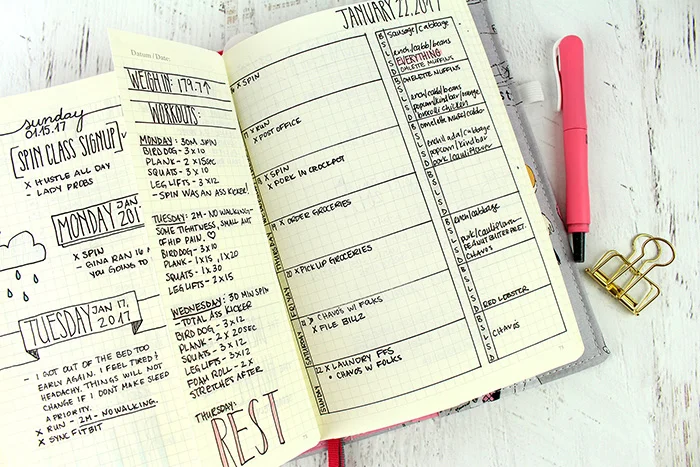 sunday
01.15.17
[SPIN CLASS SIGNUP]
X HUSTLE ALL DAY
- LADY PROBS
MONDAY JAN
201
X SPIN
- GINA RAN 16
YOU GOING TO
TUESDAY JAN 17,
2017
- I GOT OUT OF THE BED TOO
EARLY AGAIN. I FEEL TIRED &
HEADACHY. THINGS WILL NOT
CHANGE IF I DON'T MAKE SLEEP
A PRIORITY.
X RUN - 2M - NO WALKING.
X SYNC FITBIT
Datum / Date:
WEIGH IN: 179.7↑
WORKOUTS:
MONDAY: 30M SPIN
BIRD DOG - 3 x 10
PLANK - 2 x 15SEC
SQUATS - 3 x 10
LEG LIFTS - 3 x 12
- SPIN WAS AN ASS KICKER!
TUESDAY: 2M - NO WALKING -
SOME TIGHTNESS, SMALL AMT
OF HIP PAIN. ♡
BIRDDOG - 3 x 10
PLANK - 1 x 15, 1 x 20
SQUATS - 1 x 30
LEG LIFTS - 2 x 15
WEDNESDAY: 30 MIN SPIN
- TOTAL ASS KICKER
BIRD DOG - 3 x 12
PLANK - 2 x 20SEC
SQUATS - 3 x 12
LEG LIFTS - 3 x 12
FOAM ROLL - 2 x
STRETCHES AFTER
THURSDAY:
REST
JANUARY 22, 2017
X SPIN
X RUN
X POST OFFICE
X SPIN
X PORK IN CROCKPOT
X ORDER GROCERIES
X PICK UP GROCERIES
CHAVO'S W/ FOLKS
X FILE BILLZ
X LAUNDRY FFS
CHAVOS W/ FOLKS
FRIDAY
SATURDAY
SUNDAY
B sausage/cabbage
S
L ench/cabb/beans
S EVERYTHING
D OMLETTE MUFFINS
B OMELETTE MUFFINS
S
L ench/cabb/beans
S popcorn/kind bar/orange
D broccoli chicken
B
S
L enchilada/cabbage
S popcorn/kind bar
D pork/cauliflower
B
S
L
S
D
B
S
L ench/cabbage
S pork/cauliflower
D CHAVO'S
B
S
L
S
D RED LOBSTER
B
S
L CHAVOS
S
D